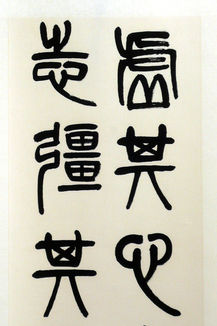 虛其心
志彊其